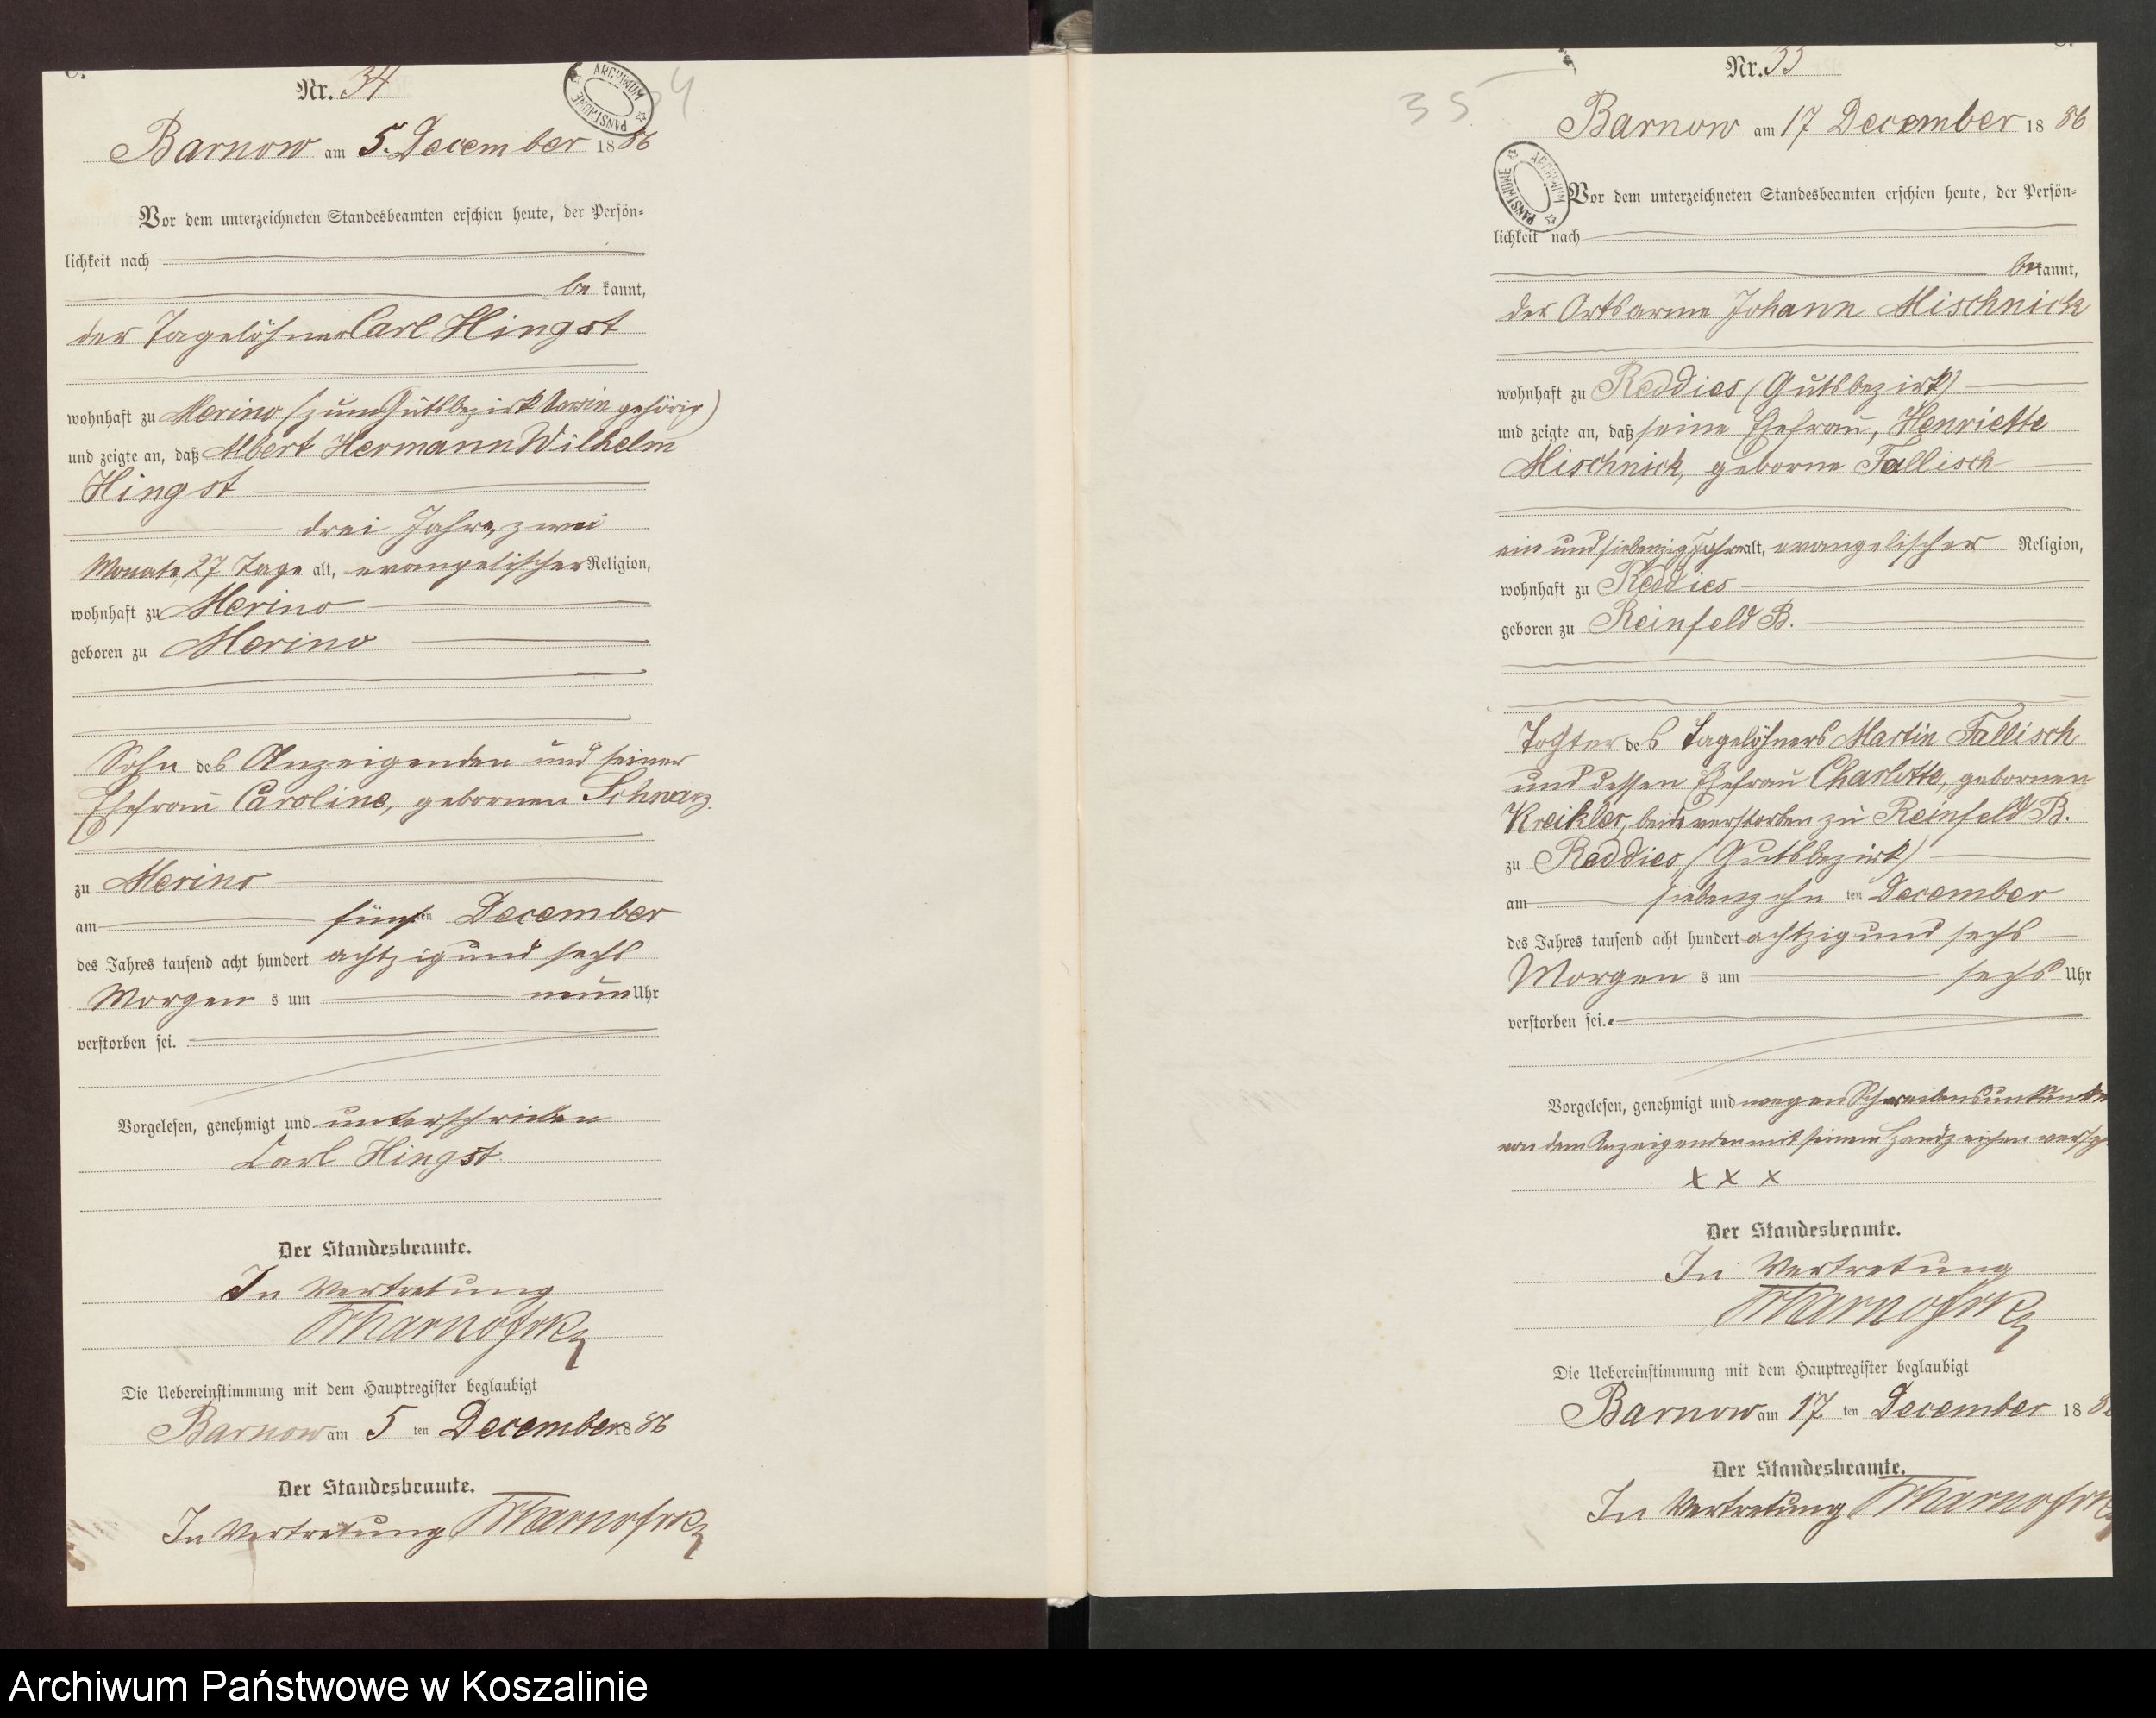 Nr. 34
ARCHIWUM PAŃSTWOWE
Barnow am 5. December 1886
Vor dem unterzeichneten Standesbeamten erschien heute, der Persön=
lichkeit nach
be kannt,
der Tagelöhner Carl Hingst
wohnhaft zu Merino (zum Gutsbezirk gehörig)
und zeigte an, daß Albert Hermann Wilhelm
Hingst
drei Jahre, zwei
Monate, 27 Tage alt, evangelischer Religion,
wohnhaft zu Merino
geboren zu Merino
Sohn des Anzeigenden und seiner
Ehefrau Caroline, gebornen Schwarz
zu Merino
am fünf ten December
des Jahres tausend acht hundert achtzig und sechs
Morgen s um neun Uhr
verstorben sei.
Vorgelesen, genehmigt und unterschrieben
Carl Hingst
Der Standesbeamte.
In Vertretung
Die Uebereinstimmung mit dem Hauptregister beglaubigt
Barnow am 5 ten December 1886
Der Standesbeamte.
In Vertretung
35
Nr. 35
Barnow am 17 December 1886
ARCHIWUM PAŃSTWOWE
Vor dem unterzeichneten Standesbeamten erschien heute, der Persön=
lichkeit nach
bekannt,
der Ortsarme Johann Mischnick
wohnhaft zu Reddies (Gutsbezirk)
und zeigte an, daß seine Ehefrau, Henriette
Mischnick, geborne Fallisch
ein und siebenzig Jahre alt, evangelischer Religion,
wohnhaft zu Reddies
geboren zu Reinfeld B.
Tochter des Tagelöhners Martin Fallisch
und dessen Ehefrau Charlotte, gebornen
Kreikler, beide verstorben zu Reinfeld B.
zu Reddies, (Gutsbezirk)
am siebenzehn ten December
des Jahres tausend acht hundert achtzig und sechs
Morgen s um sechs Uhr
verstorben sei.
Vorgelesen, genehmigt und wegen Schreibensunkunde
von dem Anzeigenden mit seinem Handzeichen
x x x
Der Standesbeamte.
In Vertretung
Die Uebereinstimmung mit dem Hauptregister beglaubigt
Barnow am 17. ten December 188
Der Standesbeamte.
In Vertretung
Archiwum Państwowe w Koszalinie